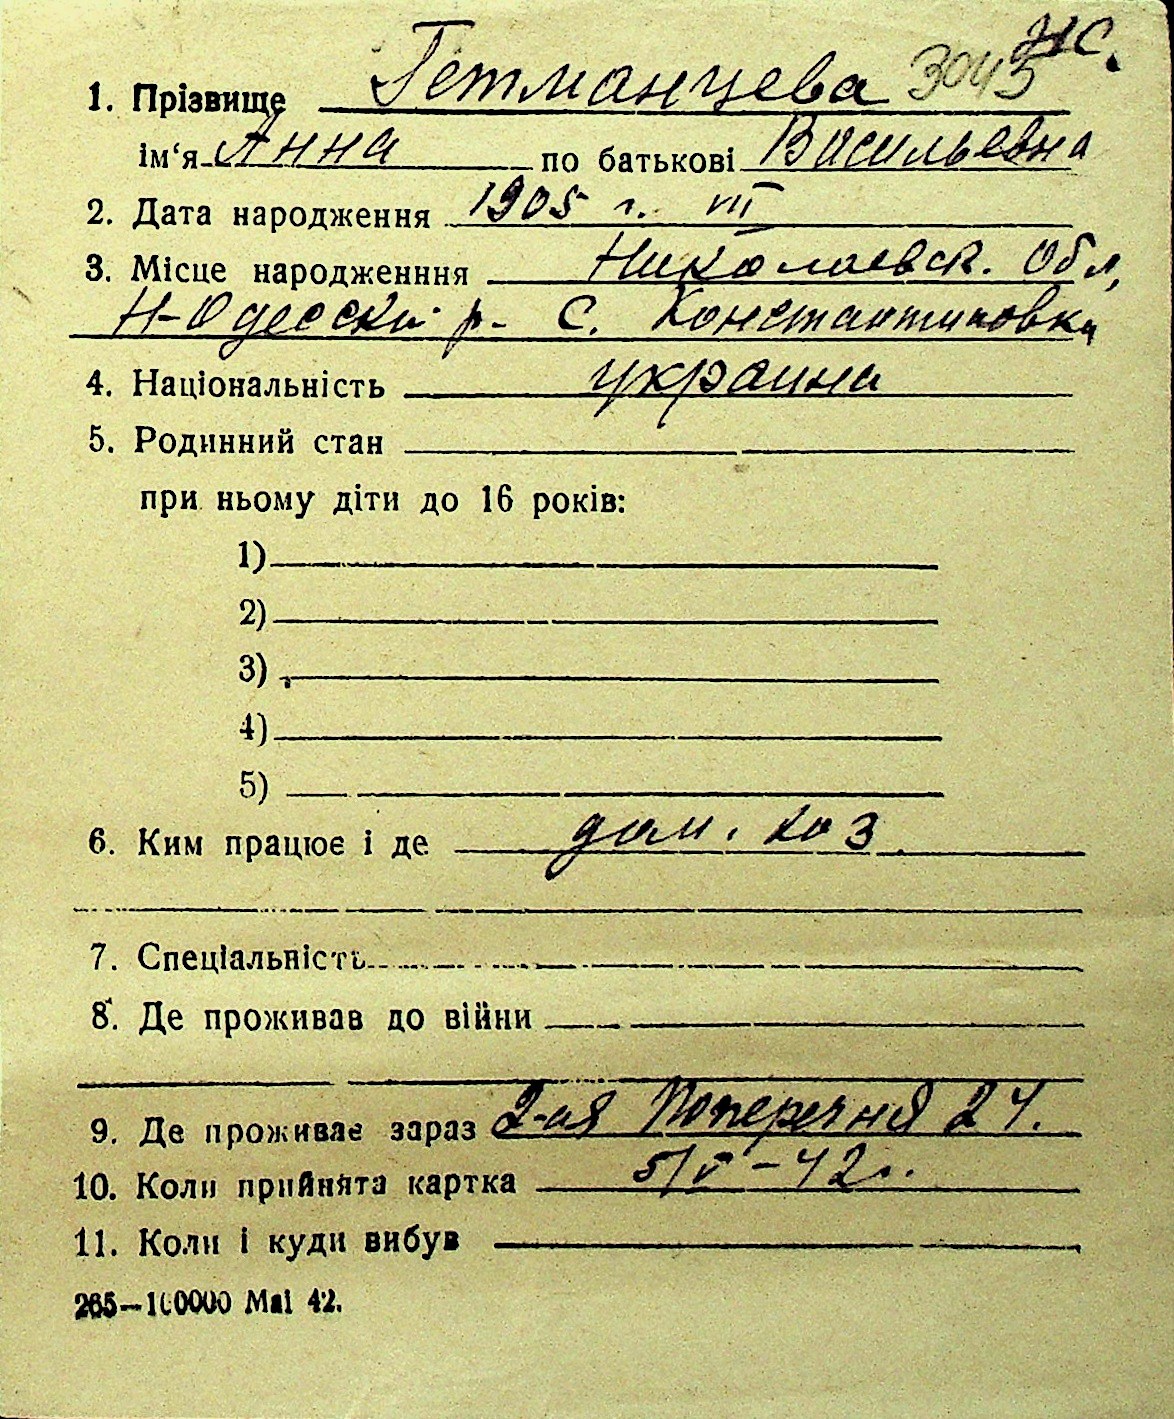 жс.
1. Прізвище Гетманцева 3045
ім‘я Анна по батькові Васильевна
2. Дата народження 1905 г. VII
3. Місце народженння Николаевск. обл,
Н-Одесски р- с. Константиновка
4. Національність украина
5. Родинний стан
при ньому діти до 16 років:
1)
2)
3)
4)
5)
6. Ким працює і де дом. хоз
7. Спеціальність
8. Де проживав до війни
9. Де проживає зараз 2-ая Поперечня 24.
10. Коли прийнята картка 5/V-42г.
11. Коли і куди вибув
265—100000 Маі 42.